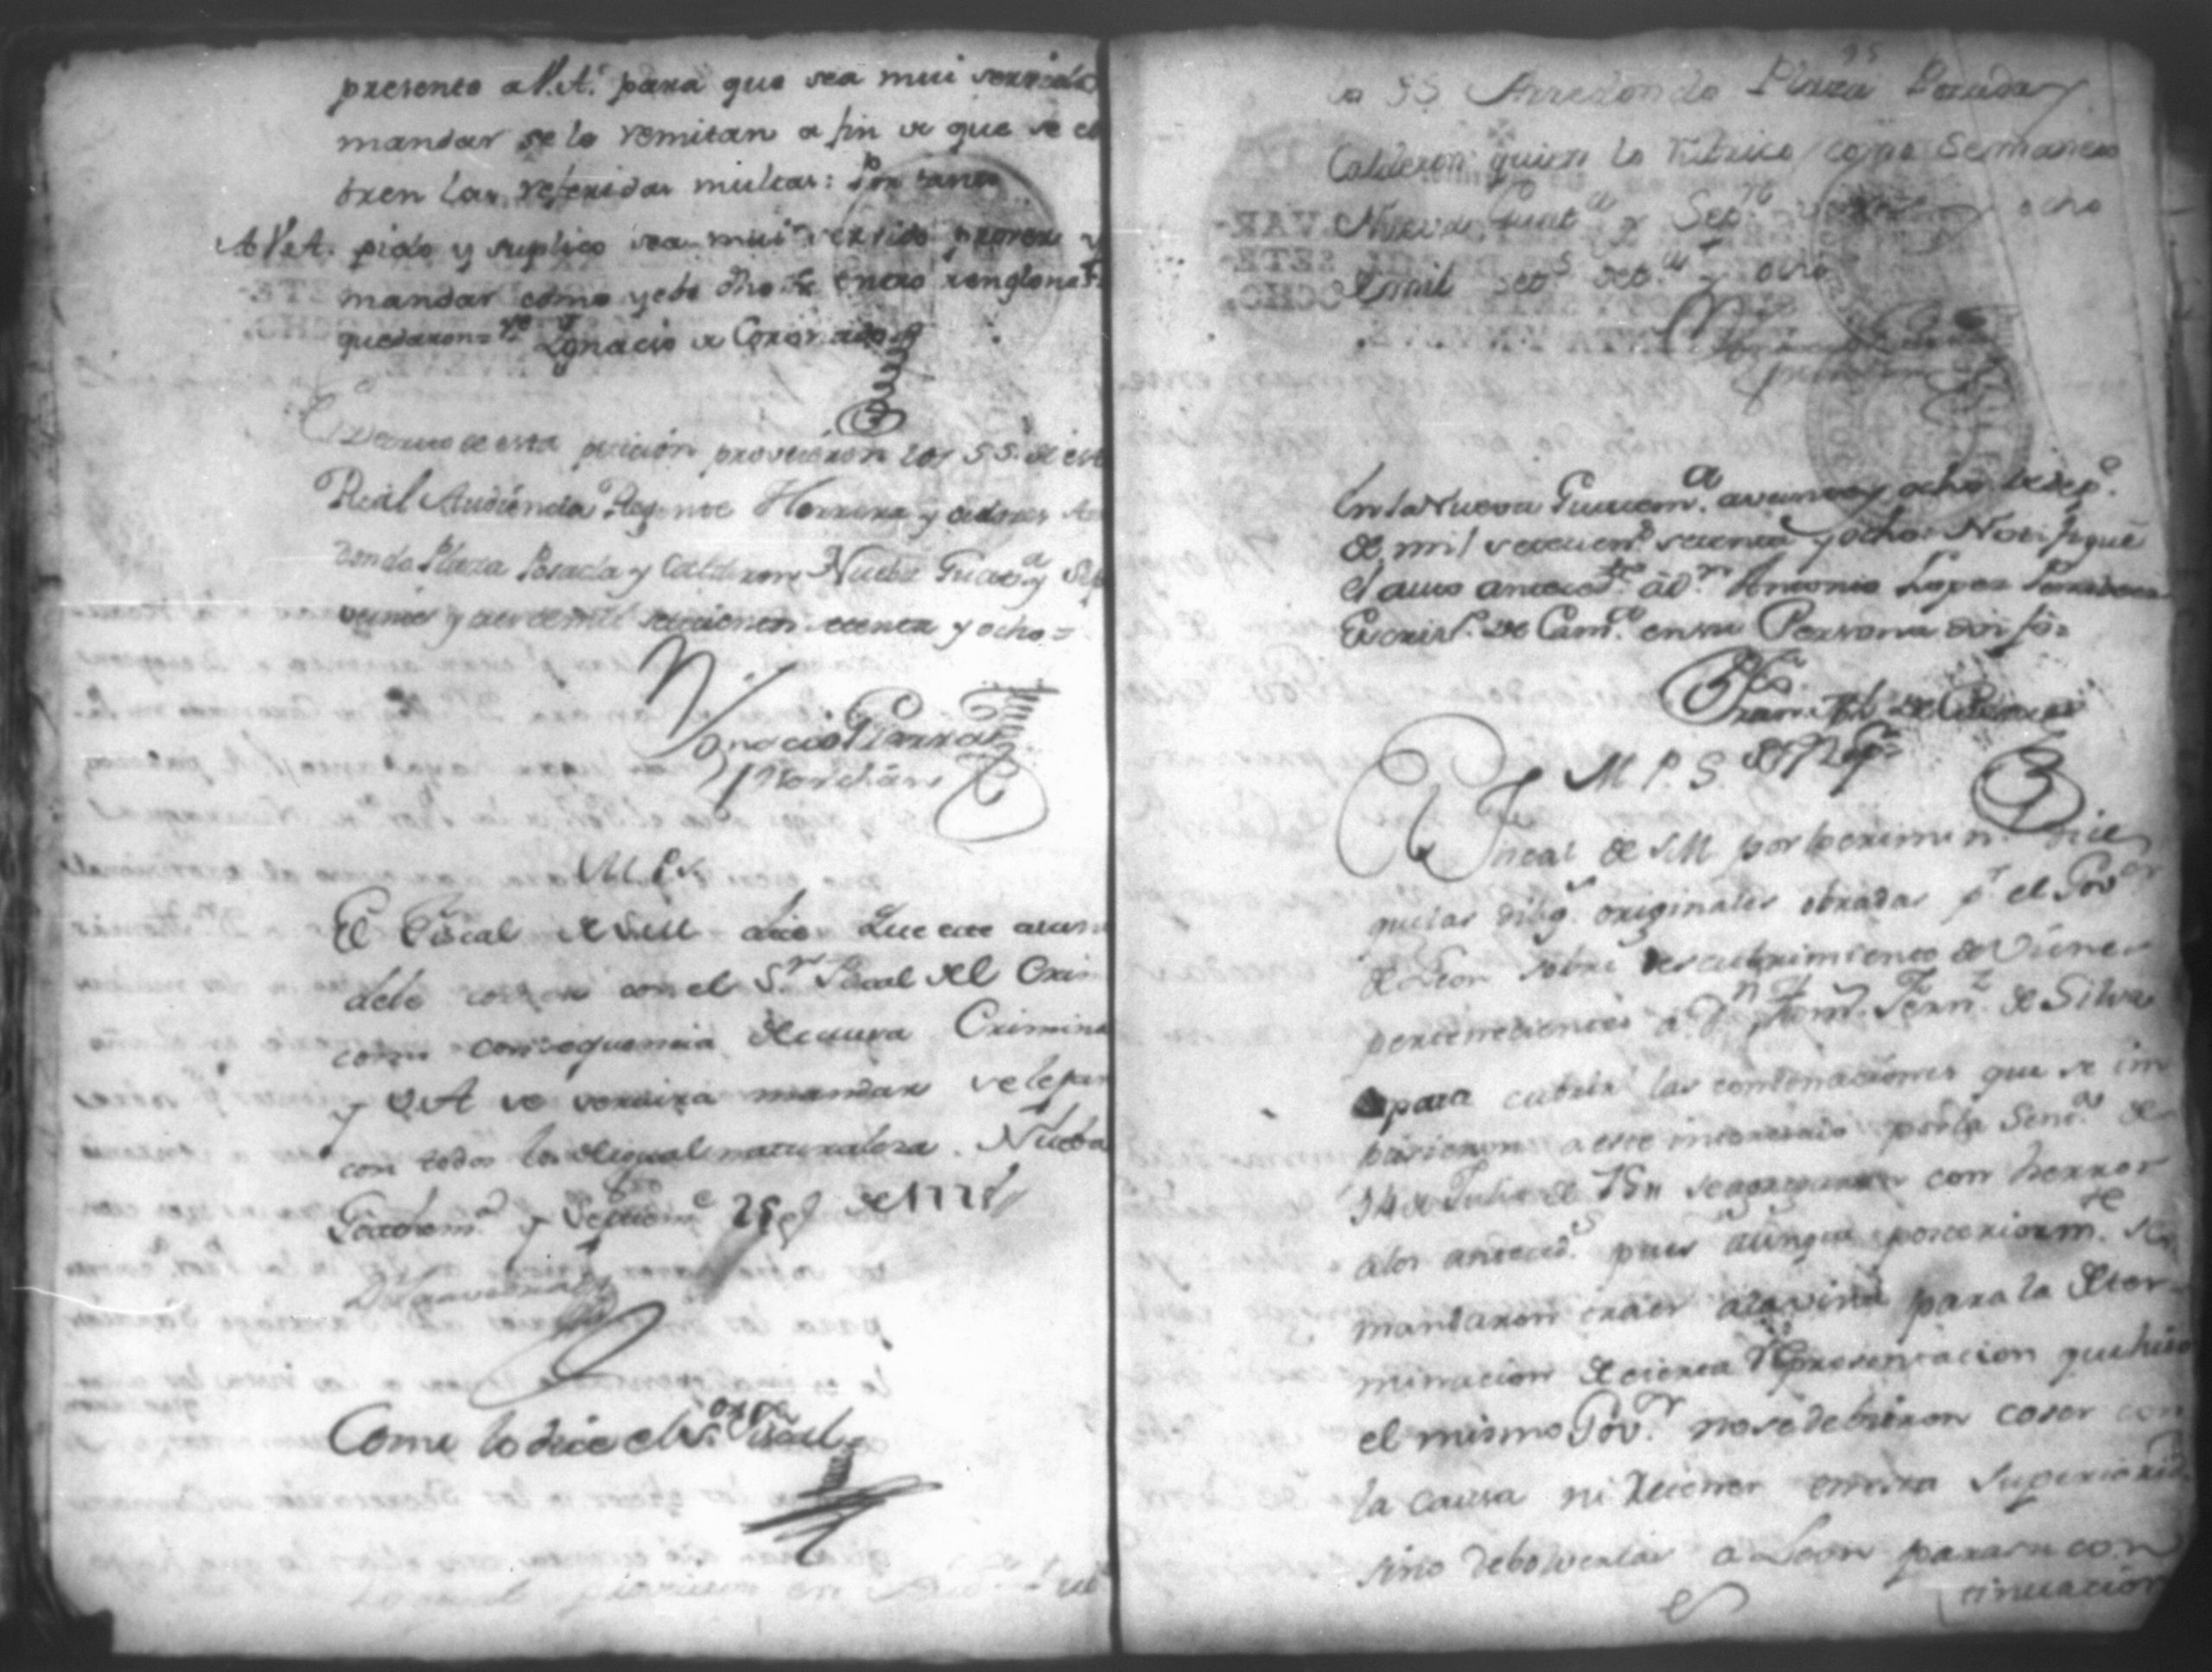 presento a V.A. para que sea mui servido
mandar se le remitan a fin de que se co
bren las referidas multas: Por tanto
A V.A. pido y suplico sea mui servido proveer y
mandar como yebo dho entre renglones
quedaron Ygnacio de Coronado
Decreto de esta peticion proveieron los SS. de esta
Real Audiencia Regente Herrera y oidores Arre
dondo Plaza Posada y Calderon Nueba Guat.a y Sep
veinte y de mil setecientos setenta y ocho =
Ygnacio Guerra
y Marchan
M.P.S.
El Fiscal de S.M. dice Que este asun
debe correr con el S.r Fiscal del Crim
como consequencia de causa Crimina
y V.A. se servira mandar se le pas
con todos los de igual naturaleza. Nueba
Goathem.a y Septiem.e 25 de 1778
Como lo dice el S.or Fiscal
Lo qual proveieron en
los SS. Arredondo Plaza Posada y
Calderon quien lo rubrico como Semanero
Nueva Guat.a y Sep.re veinte y ocho
de mil set.s set.a y ocho
En la Nueva Guatem.a a veinte y ocho de Sep.e
de mil setecien.s setenta y ocho: Notifiqué
el auto anteced.te a D.n Antonio Lopez Peñalver
Escriv.o de Cam.a en su Persona doi fé=
M.P.S.
El Fiscal de S.M. por lo crimin.l dice
que las dilig.s originales obradas p.r el Gov.or
de Leon sobre descubrimiento de Vienes
pertenecientes a D.n Fern.z de Silva
para cubrir las condenaciones que se im
pusieron a este interesado por la Sent.a de
14 de Julio de se agregaron con herror
a los anteced.s pues aunque posteriorm.te se
mandaron traer a la vista para la deter-
minacion de cierta representacion que hizo
el mismo Gov.or no se debieron coser con
la causa ni detener en esta Superiorid.
sino debolverlas a Leon para su con
tinuacion